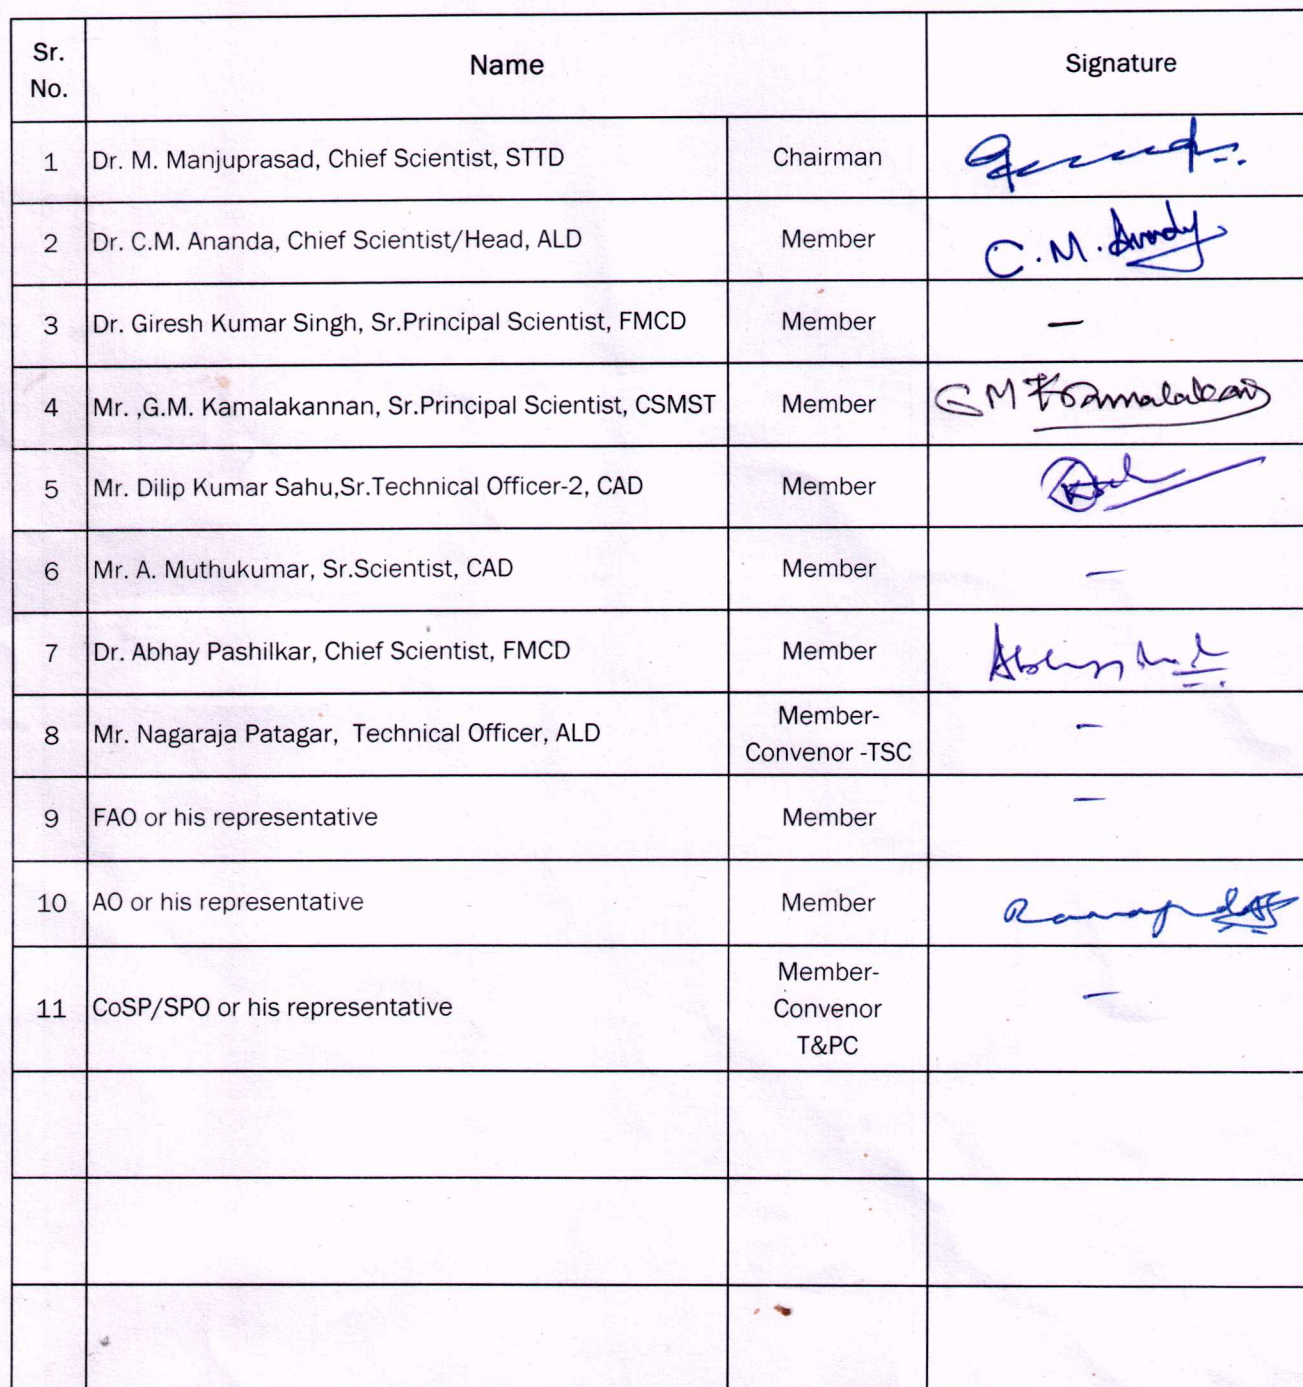 Sr.
No.
Name
Signature
1 Dr. M. Manjuprasad, Chief Scientist, STTD Chairman
2 Dr. C.M. Ananda, Chief Scientist/Head, ALD Member C.M.
3 Dr. Giresh Kumar Singh, Sr.Principal Scientist, FMCD Member –
4 Mr. ,G.M. Kamalakannan, Sr.Principal Scientist, CSMST Member GM
5 Mr. Dilip Kumar Sahu,Sr.Technical Officer-2, CAD Member
6 Mr. A. Muthukumar, Sr.Scientist, CAD Member –
7 Dr. Abhay Pashilkar, Chief Scientist, FMCD Member
8 Mr. Nagaraja Patagar, Technical Officer, ALD Member-
Convenor -TSC –
9 FAO or his representative Member –
10 AO or his representative Member
11 CoSP/SPO or his representative Member-
Convenor –
T&PC